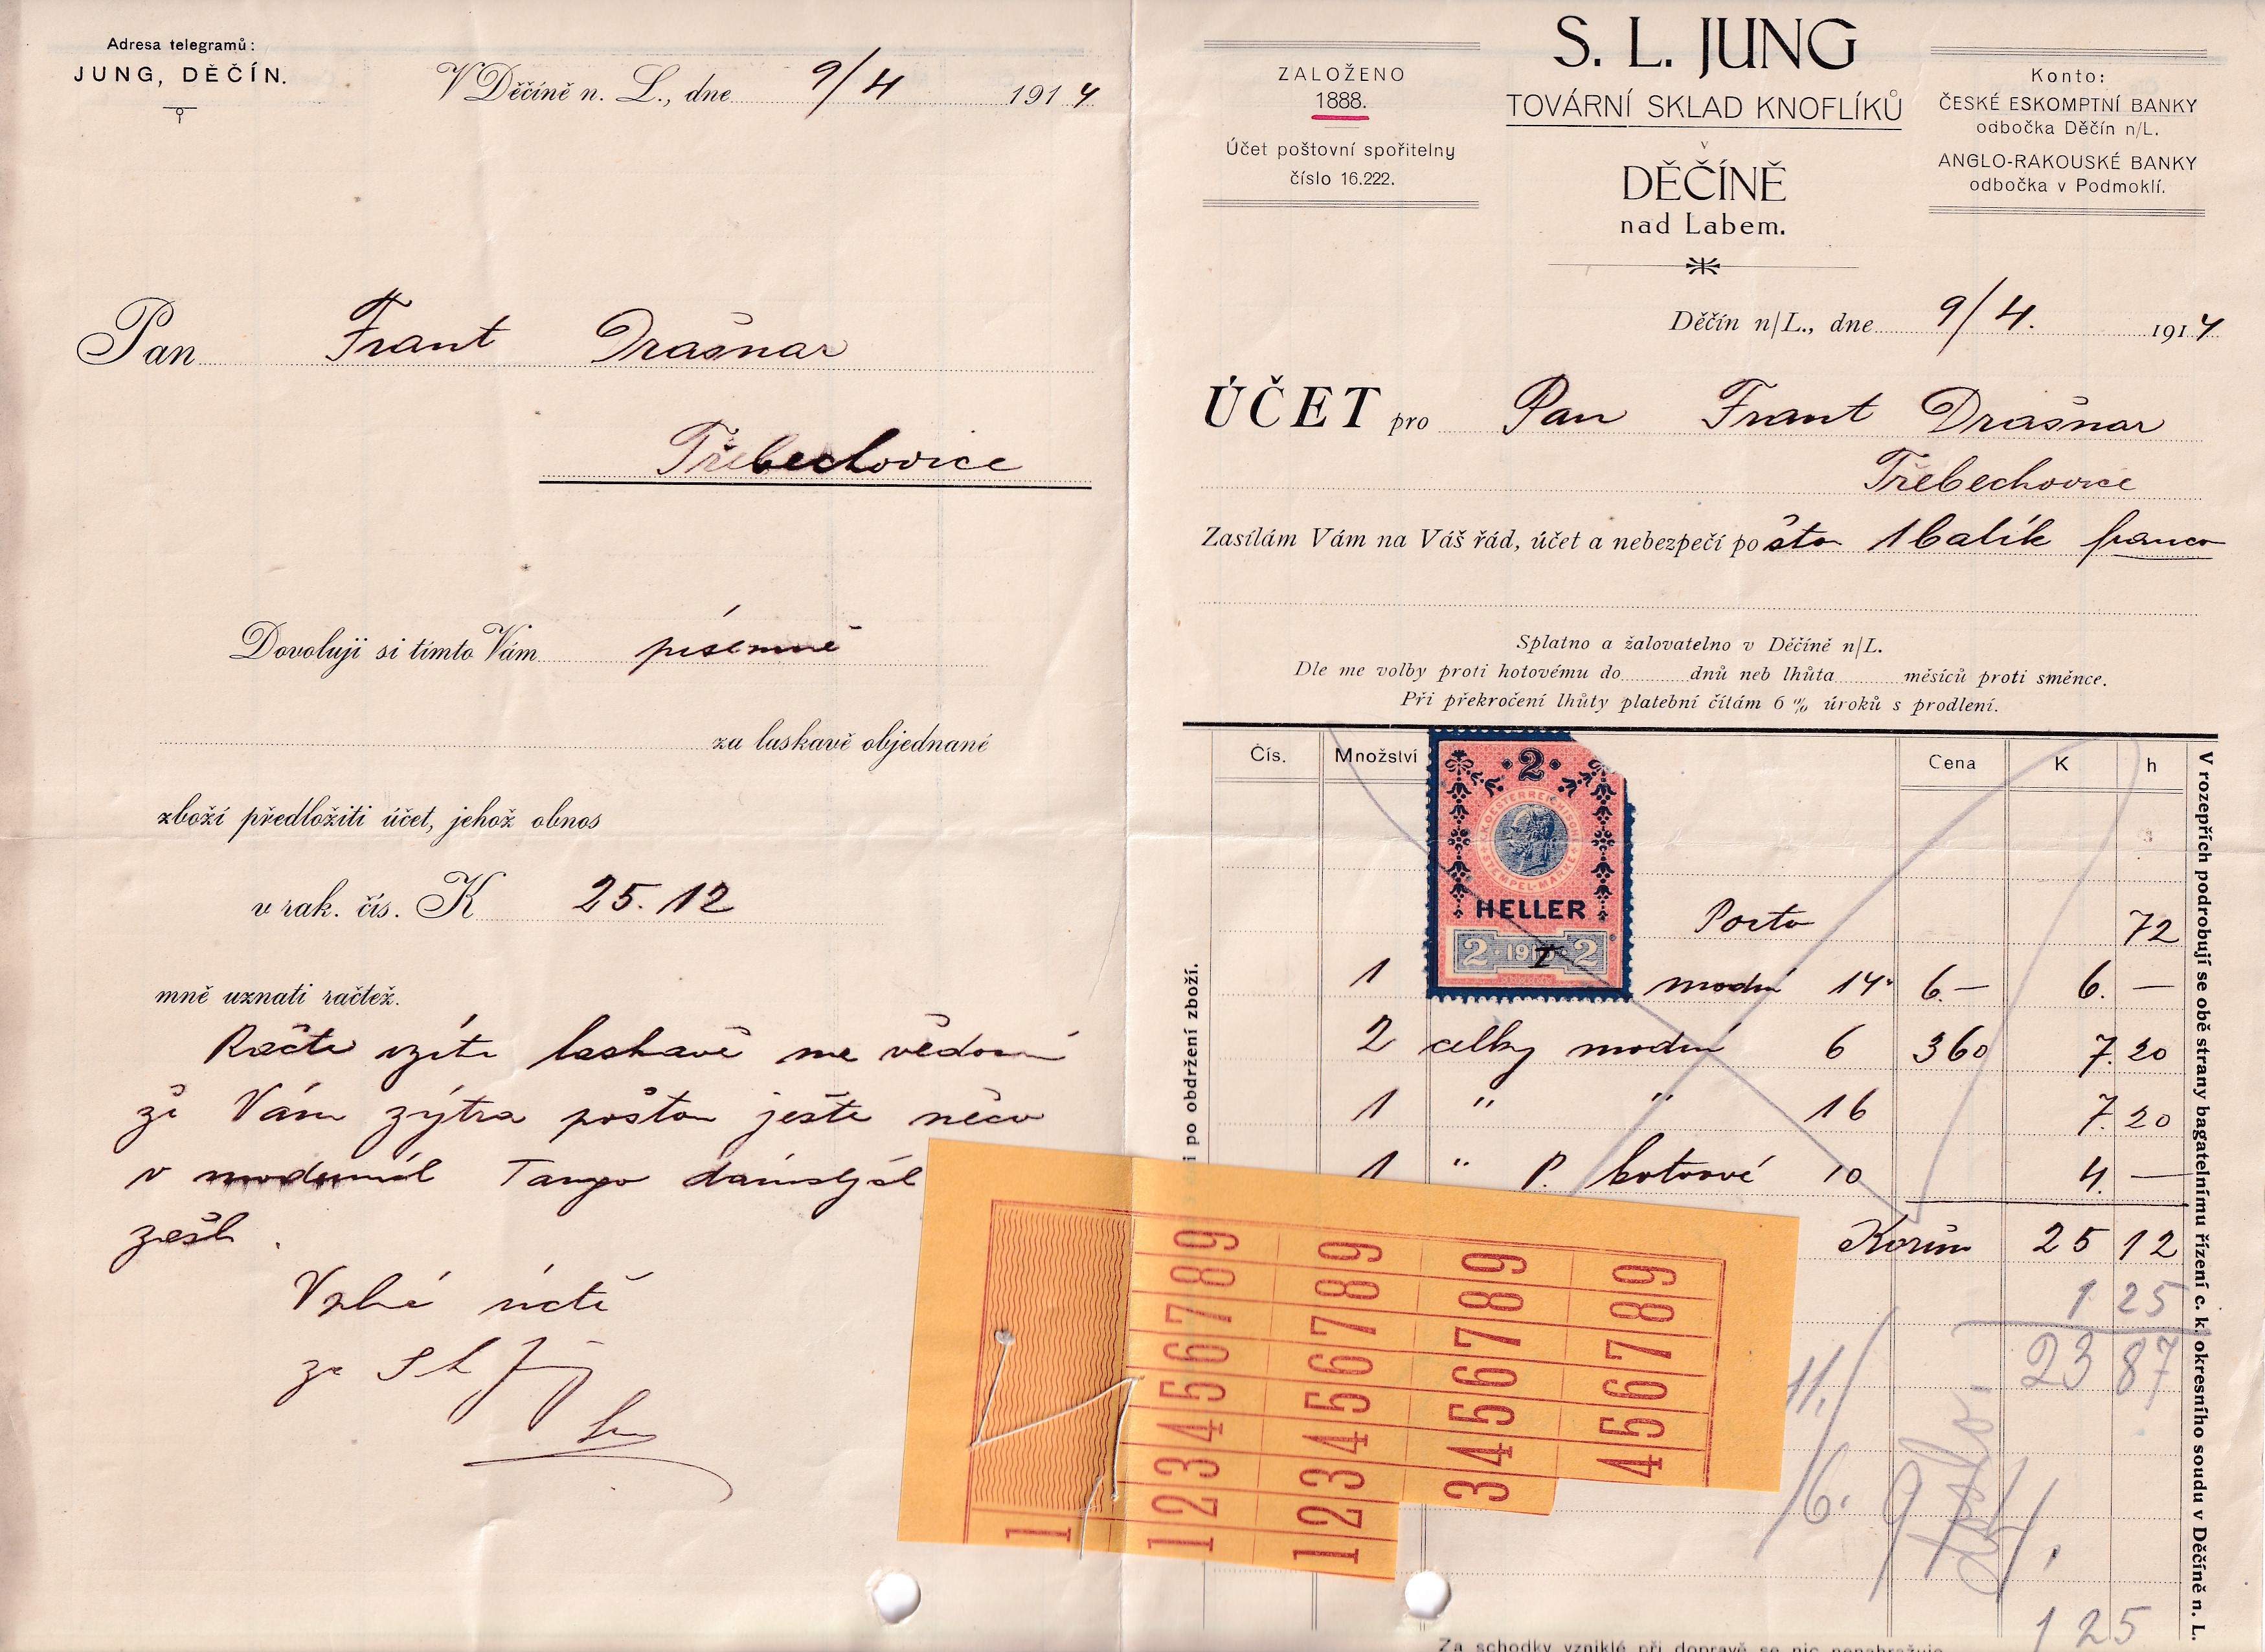 Adresa telegramů:
JUNG, DĚČÍN.
V Děčíně n. L., dne 9/4 1914
Pan Frant Drašnar
Třebechovice
Dovoluji si tímto Vám písemně
za laskavě objednané
zboží předložiti účet, jehož obnos
v rak. čís. K 25.12
mně uznati račtež.
Račte vzíti laskavě me vědomí
že Vám zýtra poštou ještě něco
v Tango
zašlu.
úctě
za S L Jung
S. L. JUNG
TOVÁRNÍ SKLAD KNOFLÍKŮ
v
DĚČÍNĚ
nad Labem.
ZALOŽENO
1888.
Účet poštovní spořitelny
číslo 16.222.
Konto:
ČESKÉ ESKOMPTNÍ BANKY
odbočka Děčín n/L.
ANGLO-RAKOUSKÉ BANKY
odbočka v Podmoklí.
Děčín n/L., dne 9/4. 1914
ÚČET pro Pan Frant Drašnar
Třebechovice
Zasílám Vám na Váš řád, účet a nebezpečí poštou 1 balík franco
Splatno a žalovatelno v Děčíně n/L.
Dle me volby proti hotovému do dnů neb lhůta měsíců proti směnce.
Při překročení lhůty platební čítám 6 % úroků s prodlení.
Čís. Množství Cena K h
2
K.K. OESTERREICHISCHE STEMPEL-MARKE
HELLER
2 191 2
Porto 72
1 modní 14 6.— 6. —
2 celky modní 6 360 7. 20
1 " " 16 7. 20
1 " P. kotoové 10 4. —
Korun 25 12
1 25
23 87
11./6.
9/4.
125
i po obdržení zboží.
V rozepřích podrobují se obě strany bagatelnímu řízení c. k. okresního soudu v Děčíně n. L.
1
1 2 3 4 5 6 7 8 9
1 2 3 4 5 6 7 8 9
3 4 5 6 7 8 9
4 5 6 7 8 9
Za schodky vzniklé při dopravě se nic nenahražuje